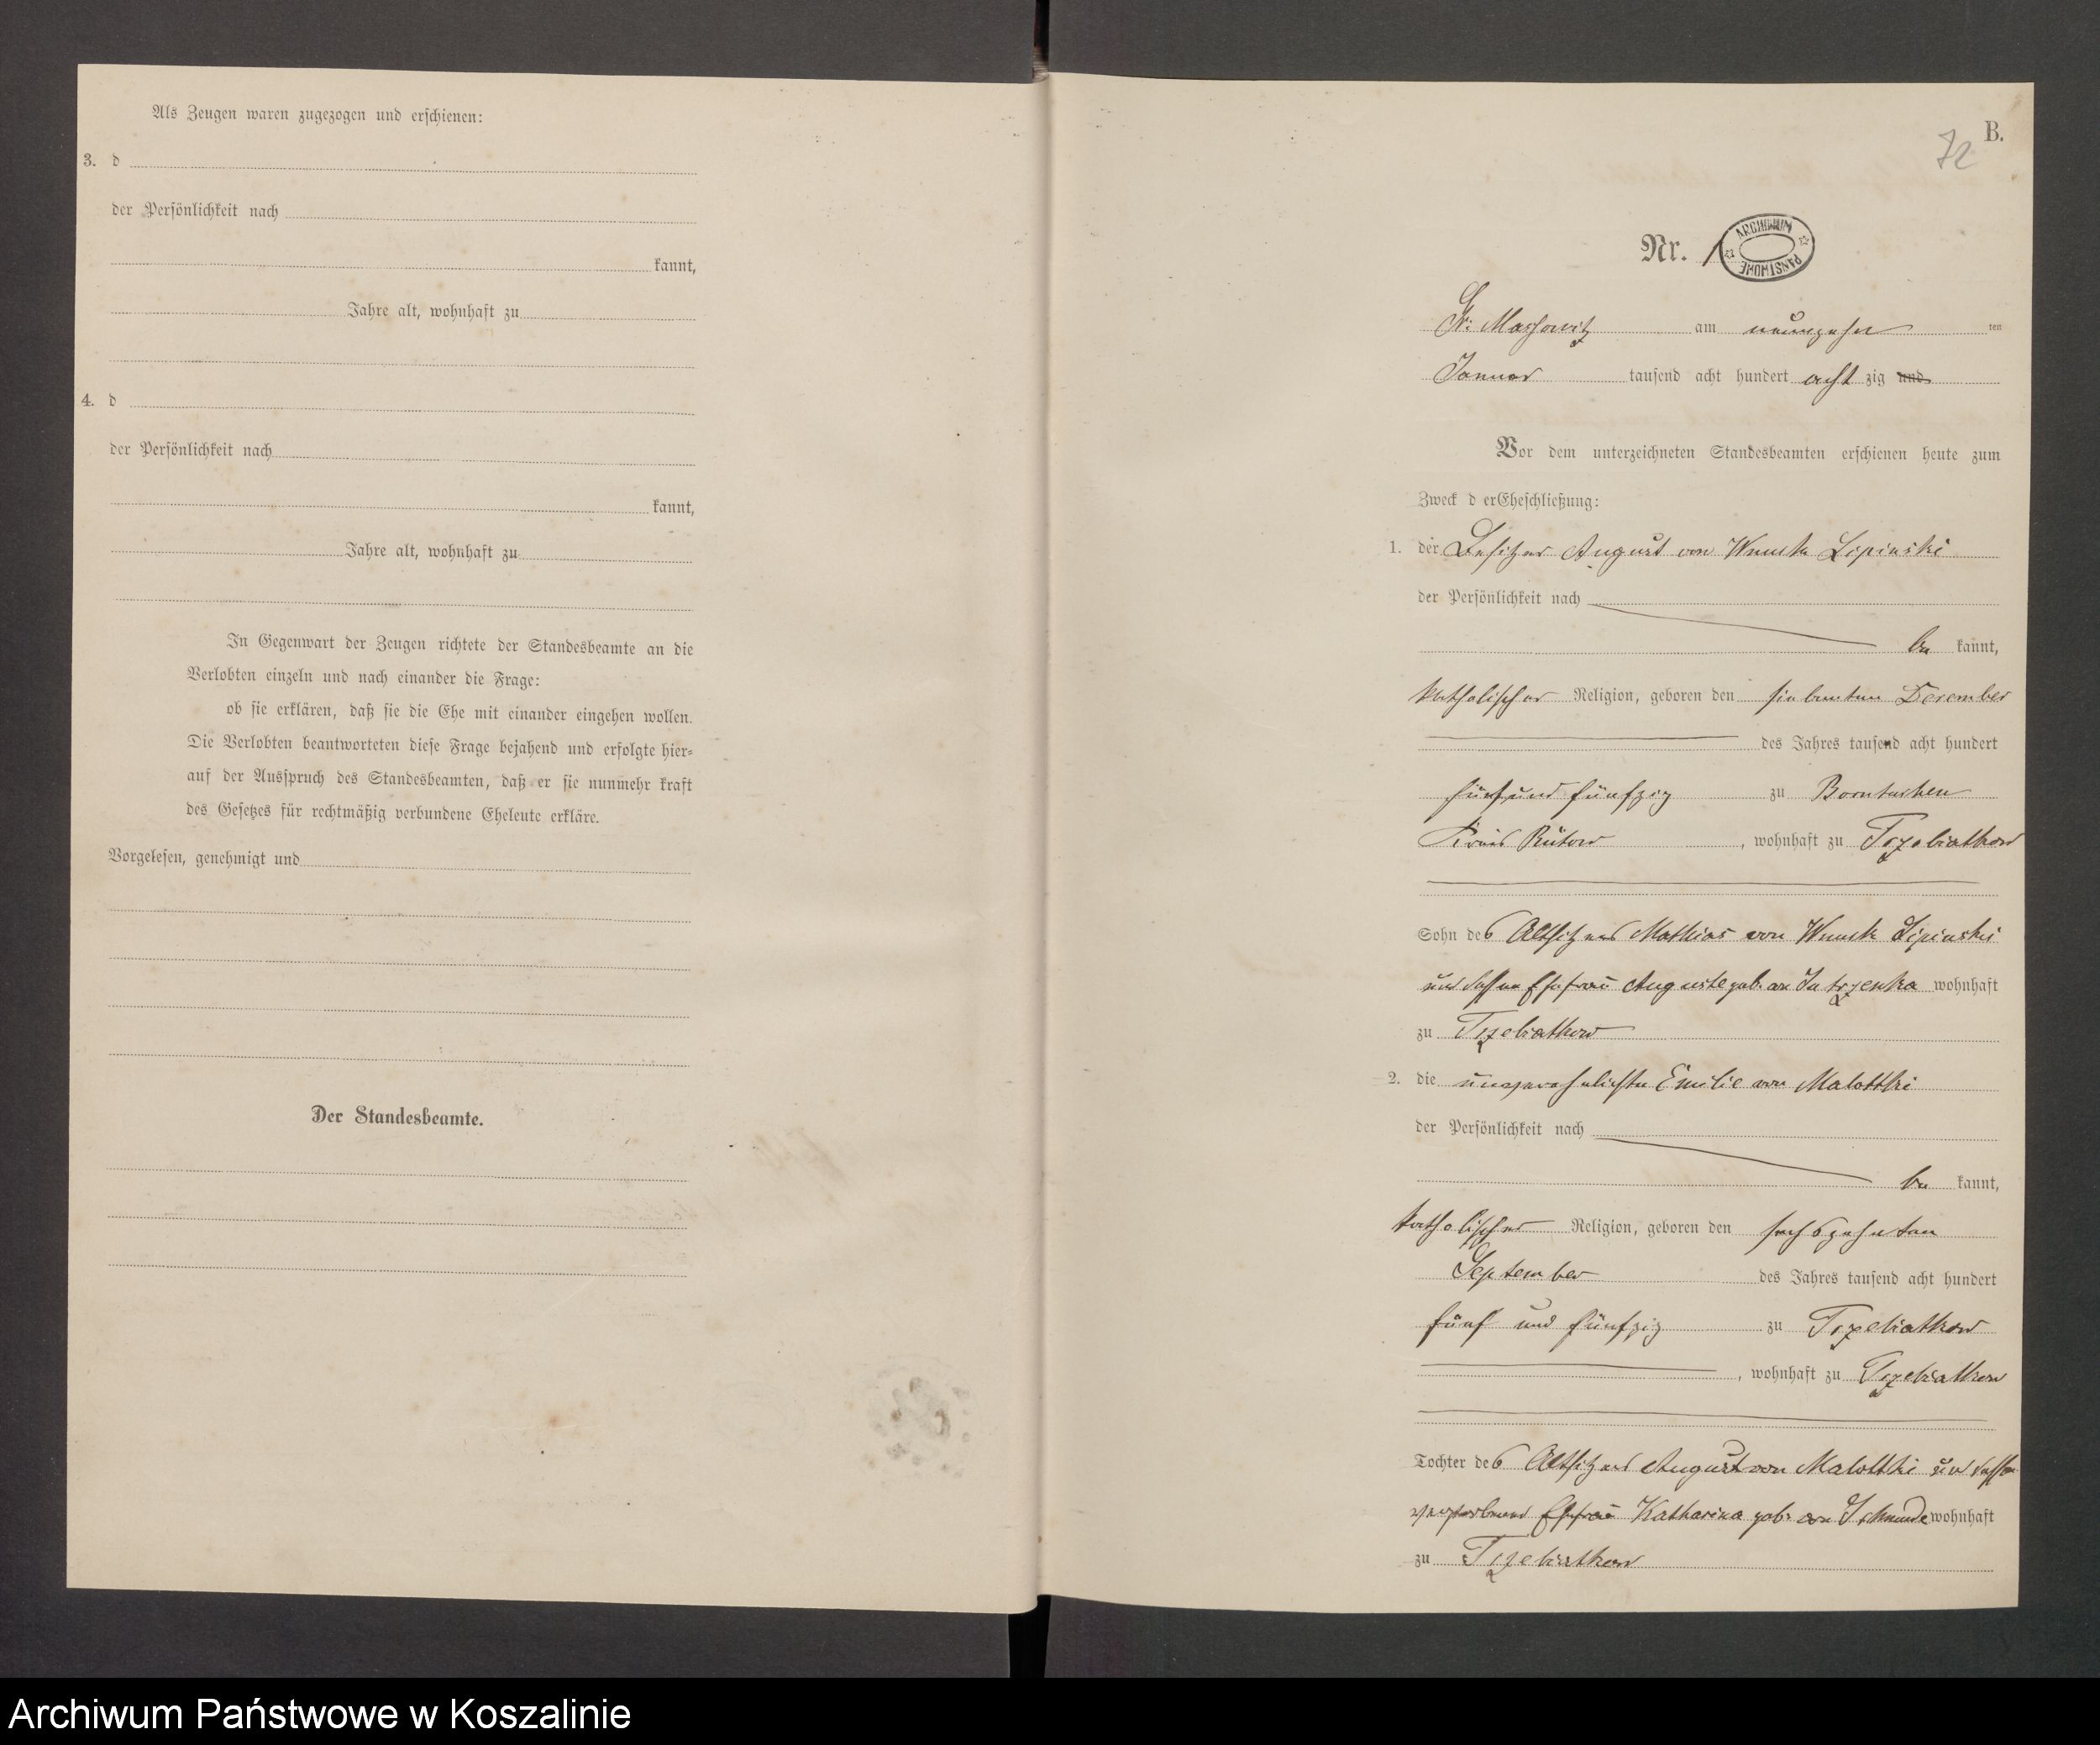 Als Zeugen waren zugezogen und erschienen:
3. d
der Persönlichkeit nach
kannt,
Jahre alt, wohnhaft zu
4. d
der Persönlichkeit nach
kannt,
Jahre alt, wohnhaft zu
In Gegenwart der Zeugen richtete der Standesbeamte an die
Verlobten einzeln und nach einander die Frage:
ob sie erklären, daß sie die Ehe mit einander eingehen wollen.
Die Verlobten beantworteten diese Frage bejahend und erfolgte hier-
auf der Ausspruch des Standesbeamten, daß er sie nunmehr kraft
des Gesetzes für rechtmäßig verbundene Eheleute erkläre.
Vorgelesen, genehmigt und
Der Standesbeamte.
B.
72
Nr. 1
ARCHIWUM PAŃSTWOWE
Gr. Massowitz am neunzehn ten
Januar tausend acht hundert acht zig und
Vor dem unterzeichneten Standesbeamten erschienen heute zum
Zweck d erEheschließung:
1. der Besitzer August von Wnuck Lipinski
der Persönlichkeit nach
be kannt,
katholischer Religion, geboren den siebenten December
des Jahres tausend acht hundert
fünf und fünfzig zu Borntuchen
Kreis Bütow, wohnhaft zu Trzebiatkow
Sohn des Altsitzers Mathias von Wnuck Lipinski
und dessen Ehefrau Auguste geb. von Jutrzenka wohnhaft
zu Trzebiatkow
2. die unverehelichte Emilie von Malottki
der Persönlichkeit nach
be kannt,
katholischer Religion, geboren den sechszehnten
September des Jahres tausend acht hundert
fünf und fünfzig zu Trzebiatkow
, wohnhaft zu Trzebiatkow
Tochter des Altsitzers August von Malottki und dessen
verstorbenen Ehefrau Katharina geb. von wohnhaft
zu Trzebiatkow
Archiwum Państwowe w Koszalinie